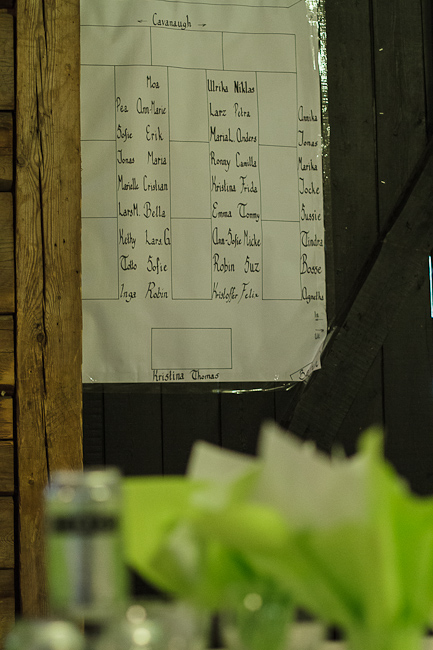 Cavanaugh
Moa
Pea Ann-Marie
Sofie Erik
Jonas Maria
Marielle Cristian
Lars M. Bella
Ketby Lars G
Totto Sofie
Inga Robin
Ulrika Niklas
Lars Petra
Maria L. Anders
Ronny Camilla
Kristina Frida
Emma Tommy
Ann-Sofie Macke
Robin Suz
Kristoffer Felix
Annika
Jonas
Marika
Jocke
Sussie
Tindra
Bosse
Agnetha
Kristina Thomas